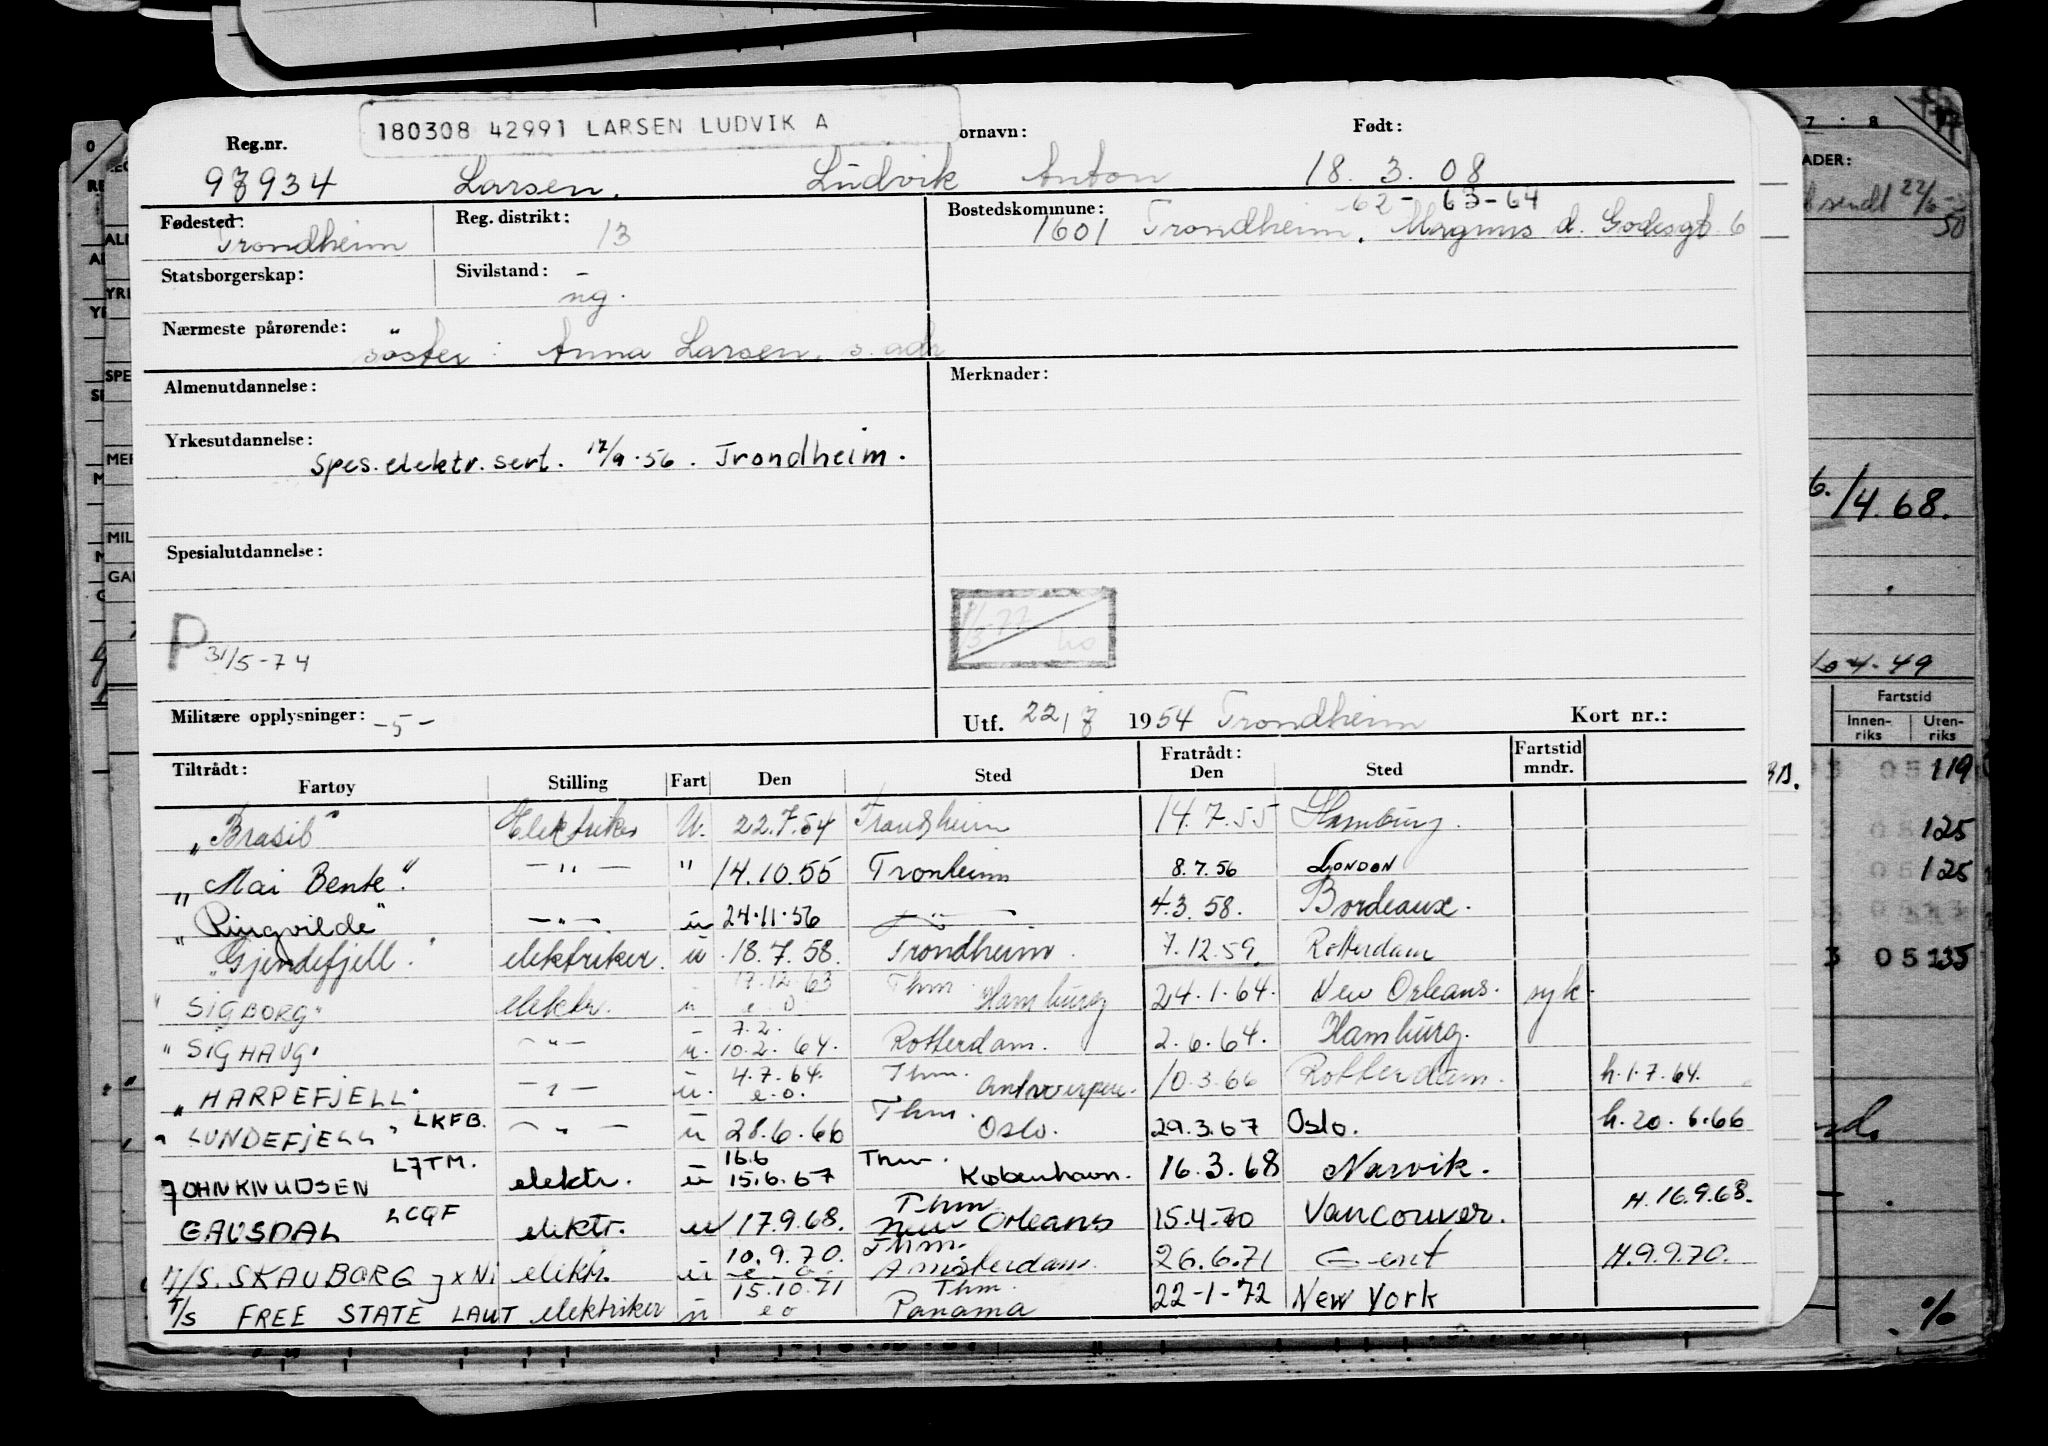 180308 42991 LARSEN LUDVIK A
Reg.nr. ornavn: Født:
97934 Larsen, Ludvik Anton 18. 3. 08
Fødested: Reg. distrikt: Bostedskommune: 62- 63-64
Trondheim 13 1601 Trondheim, Magnus d. Godesgt. 6
Statsborgerskap: Sivilstand: -
ng.
Nærmeste pårørende:
søster : Anna Larsen, s. adr
Almenutdannelse: Merknader:
Yrkesutdannelse:
Spes. elektr. sert. 17/9-56. Trondheim.
Spesialutdannelse:
P 31/5-74
Militære opplysninger: -5- Utf. 22/7 1954 Trondheim Kort nr.:
Tiltrådt: Fratrådt: Fartstid
Fartøy Stilling Fart Den Sted Den Sted mndr.
"Brasil" Elektriker U. 22.7.54 Trondheim 14.7.55 Hamburg.
"Mai Bente". -"- " 14.10.55 Tronheim 8.7.56 LONDON
"Ringvilde" -"- u 24.11.56 -"- 4.3.58. Bordeaux.
"Gjendefjell". elektriker. u 18.7.58. Trondheim. 7.12.59. Rotterdam
17.12.63 Thm.
"SIGBORG" elektr. u e.o Hamburg 24.1.64. New Orleans. syk.
7.2.
"SIGHAUG" -"- u. 10.2.64. Rotterdam. 2.6.64. Hamburg.
4.7.64. Thm.
"HARPEFJELL" -"- u. e.o. Antwerpen. 10.3.66 Rotterdam. h.1.7.64.
Thm.
"LUNDEFJELL" LKFB. -"- u 28.6.66 Oslo. 29.3.67 Oslo. h.20.6.66
16.6 Thm.
JOHN KNUDSEN LJTM. elektr. u 15.6.67 København. 16.3.68 Narvik.
Thm
GAUSDAL LCQF elektr. u 17.9.68. New Orleans 15.4.70 Vancouver. H.16.9.68.
10.9.70. Thm.
M/S. SKAUBORG JXNI elektr. u e.o. Amsterdam. 26.6.71 Gent H.9.9.70.
15.10.71 Thm.
T/S FREE STATE LAUT elektriker u eo Panama 22-1-72 New York
ADER:
22/6
50
/4.68.
4-49
Fartstid
Innen- Uten-
riks riks
119
125
125
3 05 135